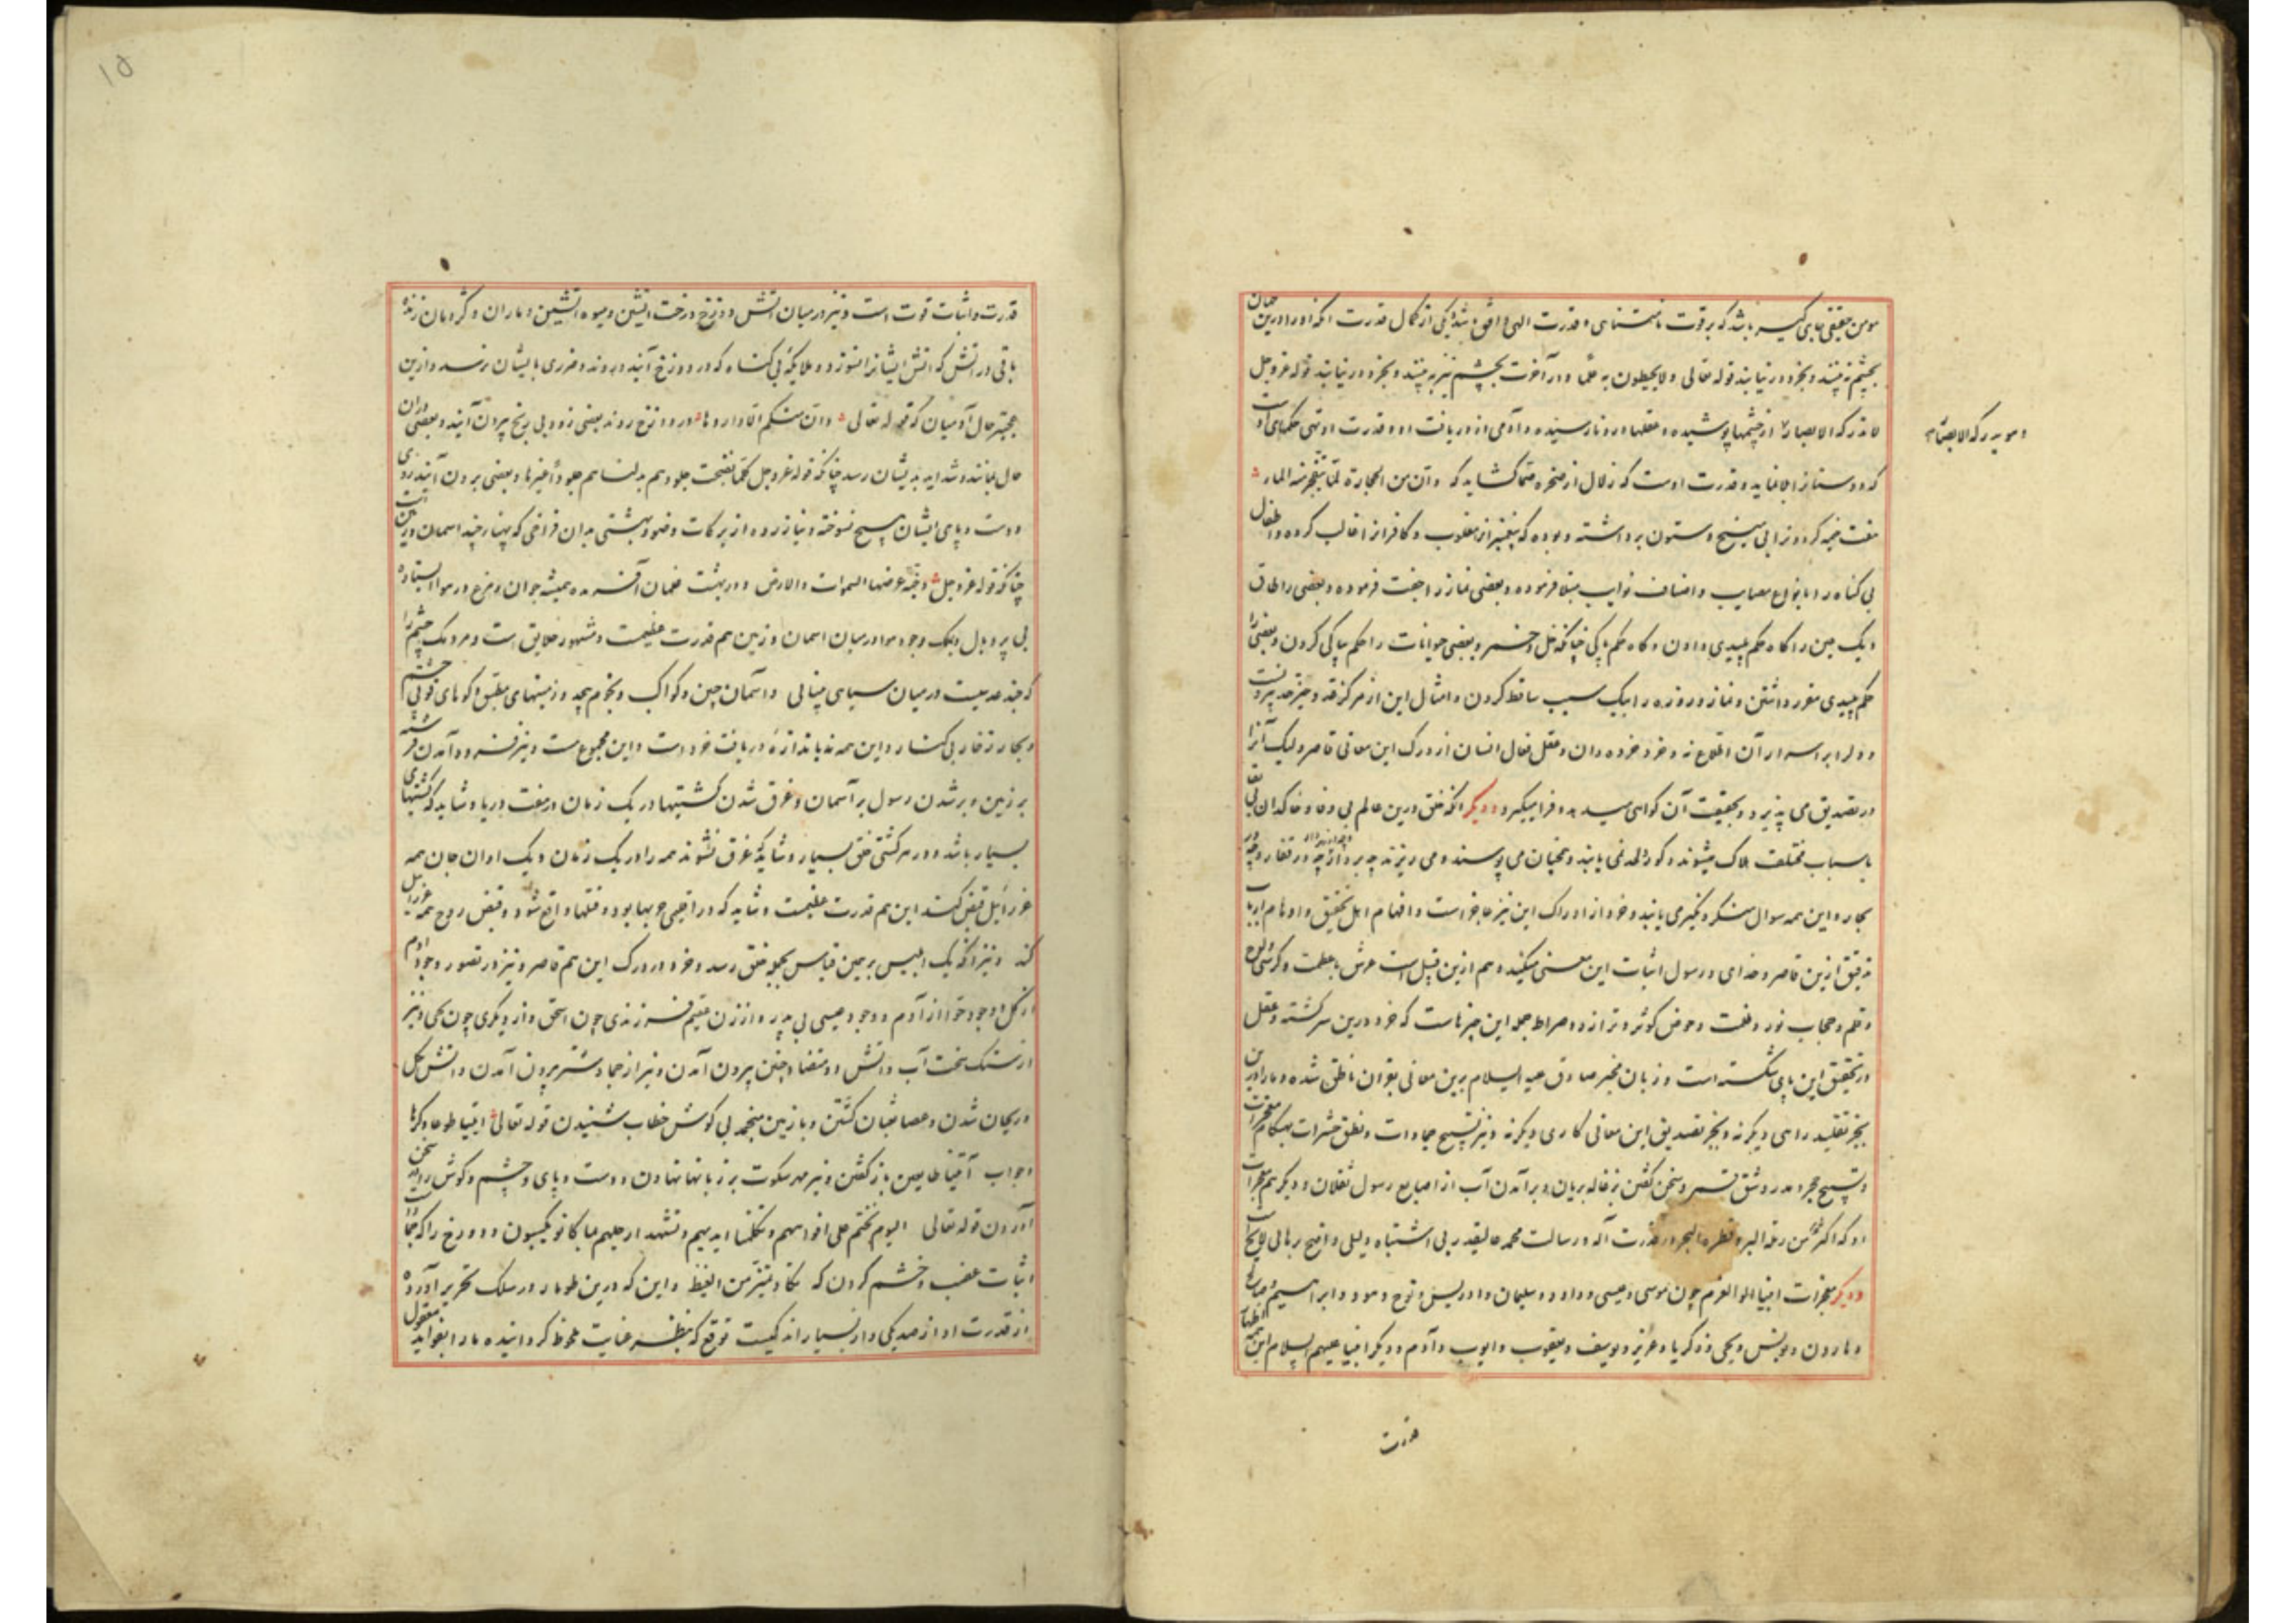 مومن حقیقی بجای کسی باشد که بر قوت نامتناهی و قدرت الهی واقف باشد یکی از کمال قدرت آنکه او را درین جهان
بچشم نه بینند و بخرد در نیابند قوله تعالی ولا یحیطون به علما و در آخرت بچشم نیز به بینند و بخرد در نیابند قوله عز و جل
لا تدرکه الابصار از چشمها پوشیده و عقلها درو نارسیده و آدمی از دریافت او و قدرت او تهی
وهو یدرک الابصار
که دوستانرا و قدرت اوست که زلال از صخره صما کشاید که وان من الحجارة لما یتفجر منه الماء
هفت خیمه کردون را بی میخ و ستون برداشته و بوده که پیغمبرانرا مغلوب و کافرانرا غالب کرده و اطفال
بی کناه را بانواع مصایب و اصناف نوایب مبتلا فرموده و بعضی نماز را جفت فرموده و بعضی را طاق
و یک عین را کاه حکم پلیدی دادن و کاه حکم پاکی چنانکه خل و خمر و بعضی حیوانات را حکم بپاکی کردن و بعضی را
حکم پلیدی مقرر داشتن و نماز و روزه را بیک سبب ساقط کردن و امثال این از مرکز
و دلها بر اسرار آن اطلاع نه و خرد خرده دان و عقل فعال انسان از درک این معانی قاصر و لیک آنرا
در تصدیق می پذیرد و بحقیقت آن کواهی میدهد و فرا میکیرد و دیکر آنکه خلق درین عالم بی وفا و خاکدان
باسباب مختلف هلاک میشوند و کور و لحد نمی یابند و همچنان می پوسند و می ریزند چه بر
بحار و این همه سوال منکر و نکیر می یابند و خرد از ادراک این نیز عاجز است و افهام اهل تحقیق و اوهام ارباب
تدقیق ازین قاصر و خدای و رسول اثبات این معنی میکنند و هم ازین قبیل است عرش با عظمت و کرسی و لوح
و قلم و حجاب نور و ظلمت و حوض کوثر و ترازو و صراط جمله این چیزهاست که خرد درین سرکشته و عقل
در تحقیق این پای شکسته است و زبان مخبر صادق علیه السلام برین معانی بقران ناطق شده و ما را درین
بجز تقلید راهی دیکر نه و بجز تصدیق این معانی کاری دیکر نه و نیز تسبیح جمادات و نطق حشرات
و تسبیح حجر و مدر و شق قمر و سخن کفتن بزغاله بریان و برآمدن آب از اصابع رسول ثقلان و دیکر هم معجزات
او که اکثر من رملة البر و قطرة البحر در قدرت اله و رسالت محمد عالیقدر بی اشتباه دلیلی واضح
و دیکر معجزات انبیا اولو العزم چون موسی و عیسی و داود و سلیمان و ادریس و نوح و هود و ابراهیم و صالح
و هارون و یونس و یحیی و زکریا و عزیر و یوسف و یعقوب و ایوب و آدم و دیکر انبیا علیهم السلام این همه اظهار
قدرت
۱۵
قدرت و اثبات قوت است و نیز در میان آتش دوزخ درخت آتشین و میوه آتشین و ماران و کژدمان زنده
باقی در آتش که آتش ایشانرا نسوزد و ملایکه بی کناه که در دوزخ آیند و روند و ضرری بایشان نرسد و ازین
عجبتر حال آدمیان که قوله تعالی وان منکم الا واردها در دوزخ روند بعضی زود بی رنج بیرون آیند و بعضی دران
حال بمانند و شداید بدیشان رسد چنانکه قوله عز و جل کلما نضجت جلودهم بدلناهم جلودا غیرها و بعضی برون آیند روی
و دست و پای ایشان هیچ نسوخته و نیازرده از برکات وضو و بهشتی بدان فراخی که پهنا چند اسمان و زمین است
چنانکه قوله عز و جل وجنة عرضها السموات والارض و در بهشت غلمان آفریده همیشه جوان و مرغ در هوا ایستاده
بی پر و بال و یک وجود هوا در میان اسمان و زمین هم قدرت عظیمت و مشهور خلایق است و مردمک چشم را
که چند عدسیست در میان سیاهی بینایی و آسمان چنین و کواکب و نجوم بیحد و زمینهای مطبق و کوههای
و بحار زخار بی کنار و این همه نه باندازه دریافت خرد است و این مجموع هست و نیز فرود آمدن فرشته
بر زمین و بر شدن رسول بر آسمان و غرق شدن کشتیها در یک زمان در هفت دریا و شاید که کشتیهای
بسیار باشد و در هر کشتی خلق بسیار و شاید که غرق نشوند همه را در یک زمان و یک اوان جان همه
عزرائیل قبض کند این هم قدرت عظیمت و شاید که در اقصی حربها بود و قتلها واقع شود و قبض روح همه عزرائیل
کند و نیز آنکه یک ابلیس برین قیاس بجمله خلق رسد و خرد در درک این هم قاصر و نیز در تصور وجود آدم
از کل و وجود حوا از آدم و وجود عیسی بی پدر و از زن عقیم فرزندی چون اسحق و از دیکری چون یحیی و نیز
از سنک سخت آب و آتش دو متضاد چنین بیرون آمدن و نیز از جماد شتر برون آمدن و آتش کل
و ریحان شدن و عصا ثعبان کشتن و با زمین منجمد بی کوش خطاب شنیدن قوله تعالی ائتیا طوعا و کرها
و جواب آتینا طایعین باز کفتن و نیز مهر سکوت بر زبانها نهادن و دست و پای و چشم و کوش را در سخن
آوردن قوله تعالی الیوم نختم علی افواههم وتکلمنا ایدیهم وتشهد ارجلهم بما کانوا یکسبون و دوزخ را که
اثبات غضب و خشم کردن که تکاد تمیز من الغیظ و این که درین طومار در سلک تحریر آورده
از قدرت او از صد یکی و از بسیار اندکیست توقع که بنظر عنایت ملحوظ کردانیده ما را